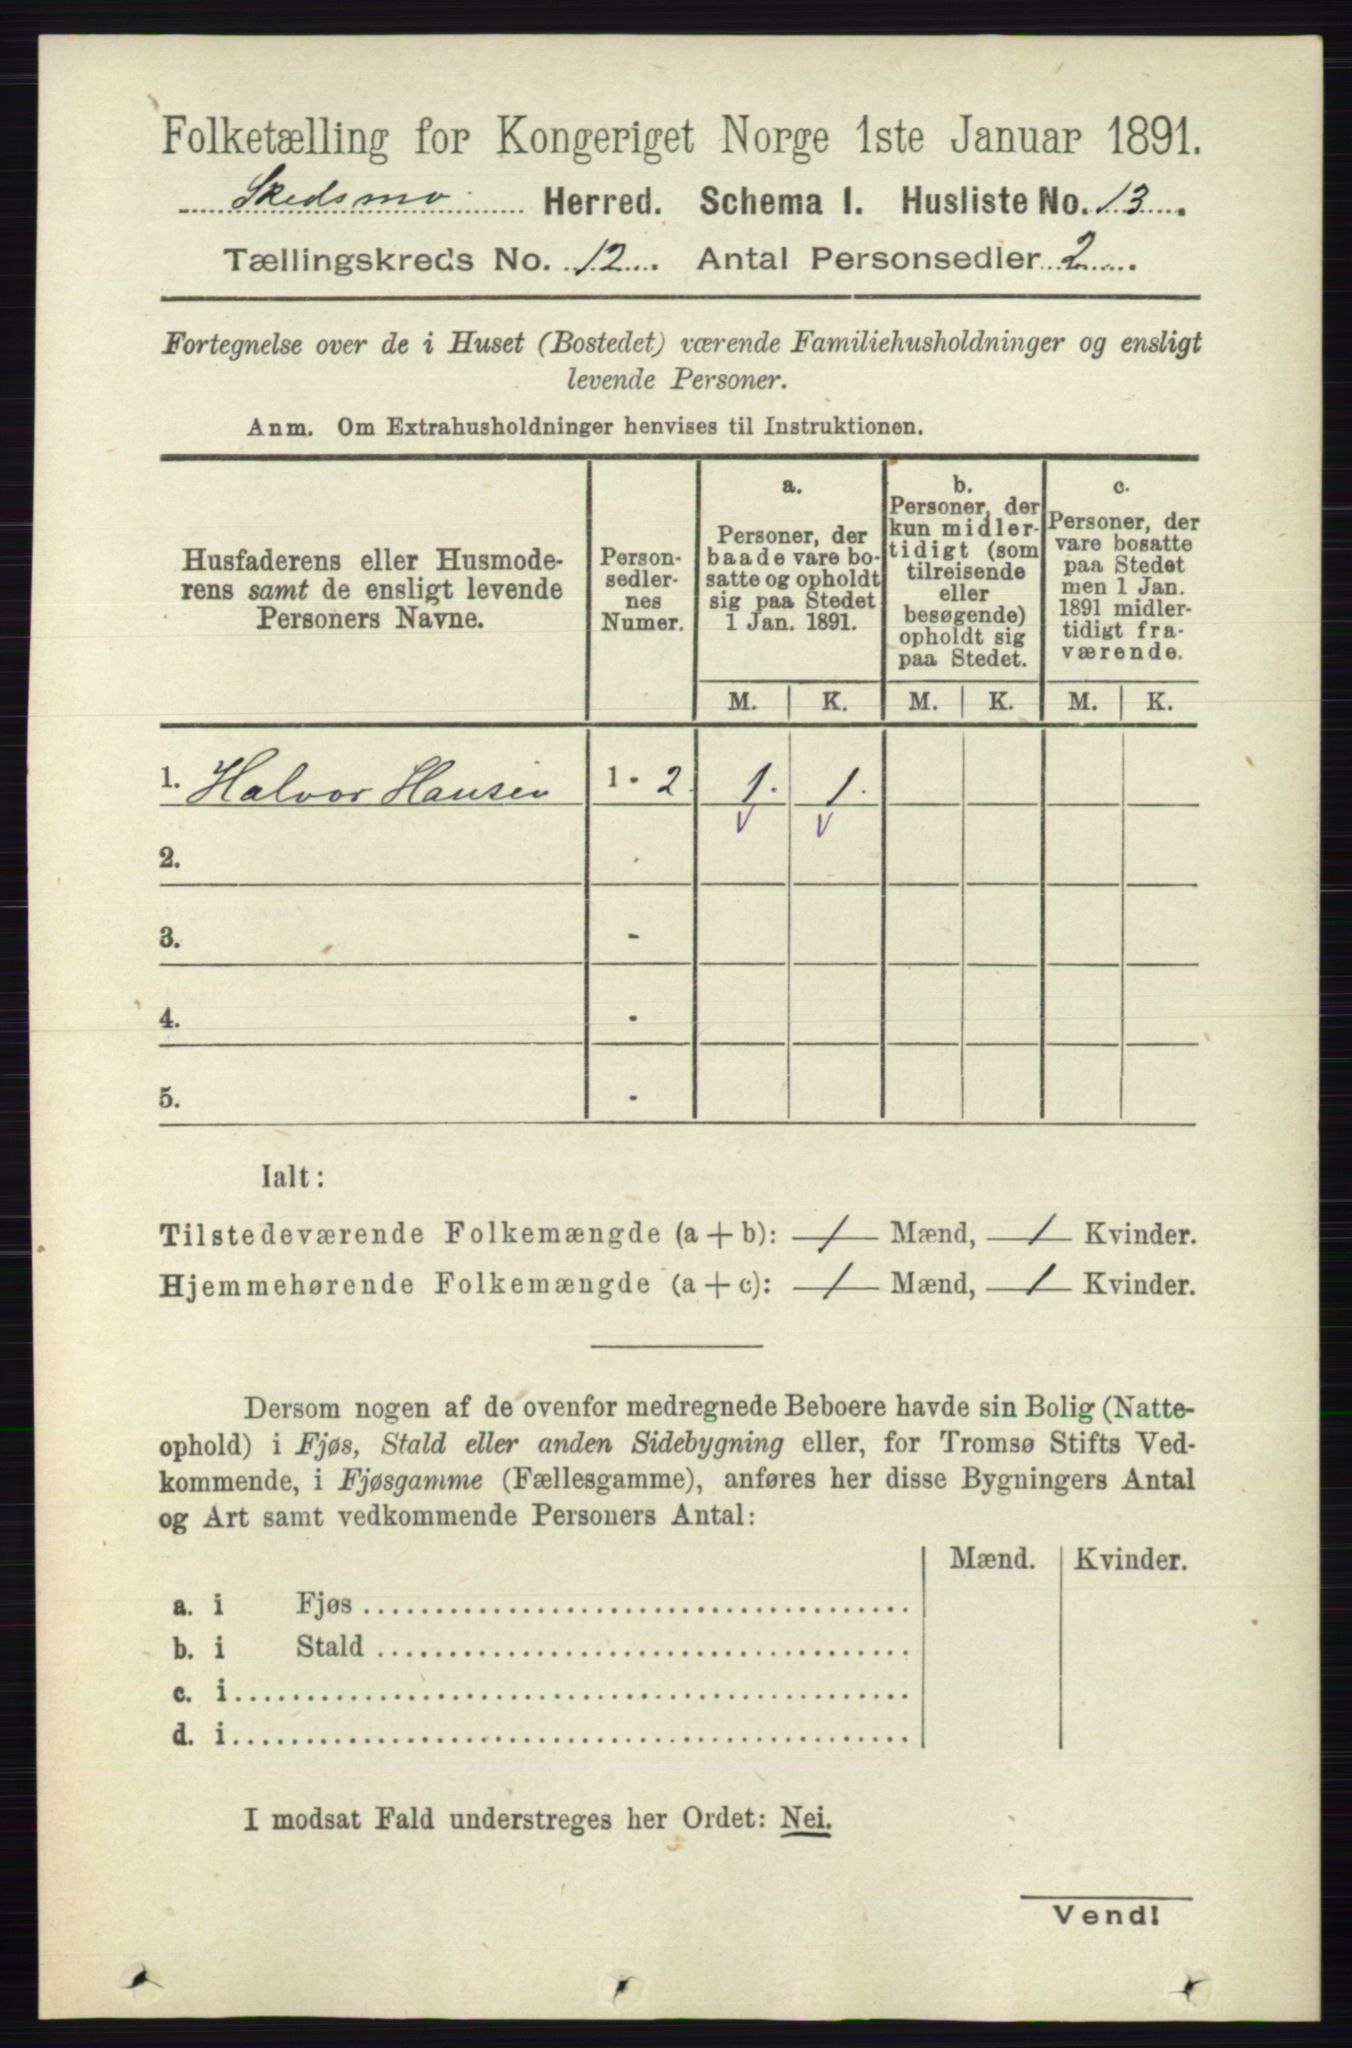 Folketælling for Kongeriget Norge 1ste Januar 1891.
Skedsmo Herred. Schema I. Husliste No. 13.
Tællingskreds No. 12. Antal Personsedler 2.
Fortegnelse over de i Huset (Bostedet) værende Familiehusholdninger og ensligt
levende Personer.
Anm. Om Extrahusholdninger henvises til Instruktionen.
Husfaderens eller Husmode-
rens samt de ensligt levende
Personers Navne.
Person-
sedler-
nes
Numer.
a.
Personer, der
baade vare bo-
satte og opholdt
sig paa Stedet
1 Jan. 1891.
b.
Personer, der
kun midler-
tidigt (som
tilreisende
eller
besøgende)
opholdt sig
paa Stedet.
c.
Personer, der
vare bosatte
paa Stedet
men 1 Jan.
1891 midler-
tidigt fra-
værende.
M. K. M. K. M. K.
1. Halvor Hansen 1 - 2 1. 1.
2.
3. -
4. -
5. -
Ialt:
Tilstedeværende Folkemængde (a + b): 1 Mænd, 1 Kvinder.
Hjemmehørende Folkemængde (a + c): 1 Mænd, 1 Kvinder.
Dersom nogen af de ovenfor medregnede Beboere havde sin Bolig (Natte-
ophold) i Fjøs, Stald eller anden Sidebygning eller, for Tromsø Stifts Ved-
kommende, i Fjøsgamme (Fællesgamme), anføres her disse Bygningers Antal
og Art samt vedkommende Personers Antal:
Mænd. Kvinder.
a. i Fjøs
b. i Stald
c. i
d. i
I modsat Fald understreges her Ordet: Nei.
Vend!